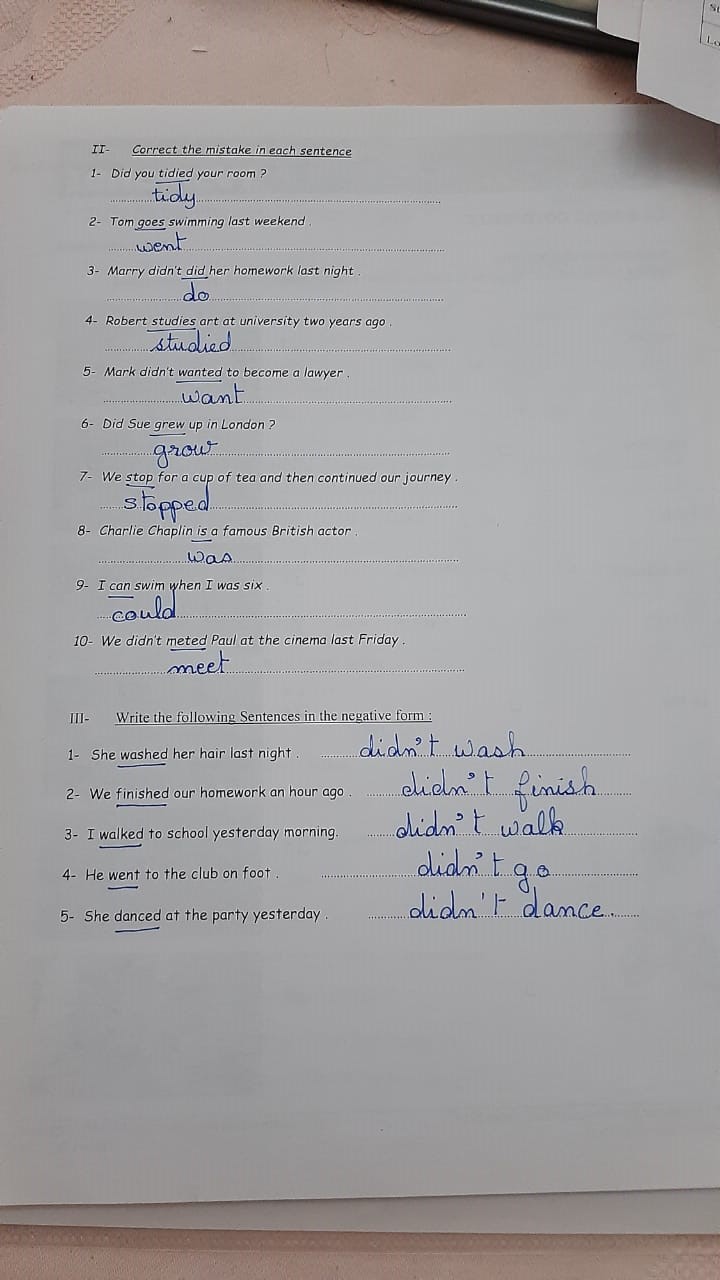 II- Correct the mistake in each sentence
1- Did you tidied your room ?
tidy
2- Tom goes swimming last weekend .
went
3- Marry didn't did her homework last night .
do
4- Robert studies art at university two years ago .
studied
5- Mark didn't wanted to become a lawyer .
want
6- Did Sue grew up in London ?
grow
7- We stop for a cup of tea and then continued our journey .
stopped
8- Charlie Chaplin is a famous British actor .
was
9- I can swim when I was six .
could
10- We didn't meted Paul at the cinema last Friday .
meet
III- Write the following Sentences in the negative form :
1- She washed her hair last night . didn't wash
2- We finished our homework an hour ago . didn't finish
3- I walked to school yesterday morning. didn't walk
4- He went to the club on foot . didn't go
5- She danced at the party yesterday . didn't dance.